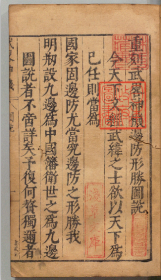 重刻武備神機邊防形勝圖説
今天下文經武緯之士欲以天下爲
己任則當爲
國家固邊防尤當究邊防之形勝我
明朝設九邊爲中國籓衛世之爲九邊
圖説者不啻詳矣予復何贅獨邇者